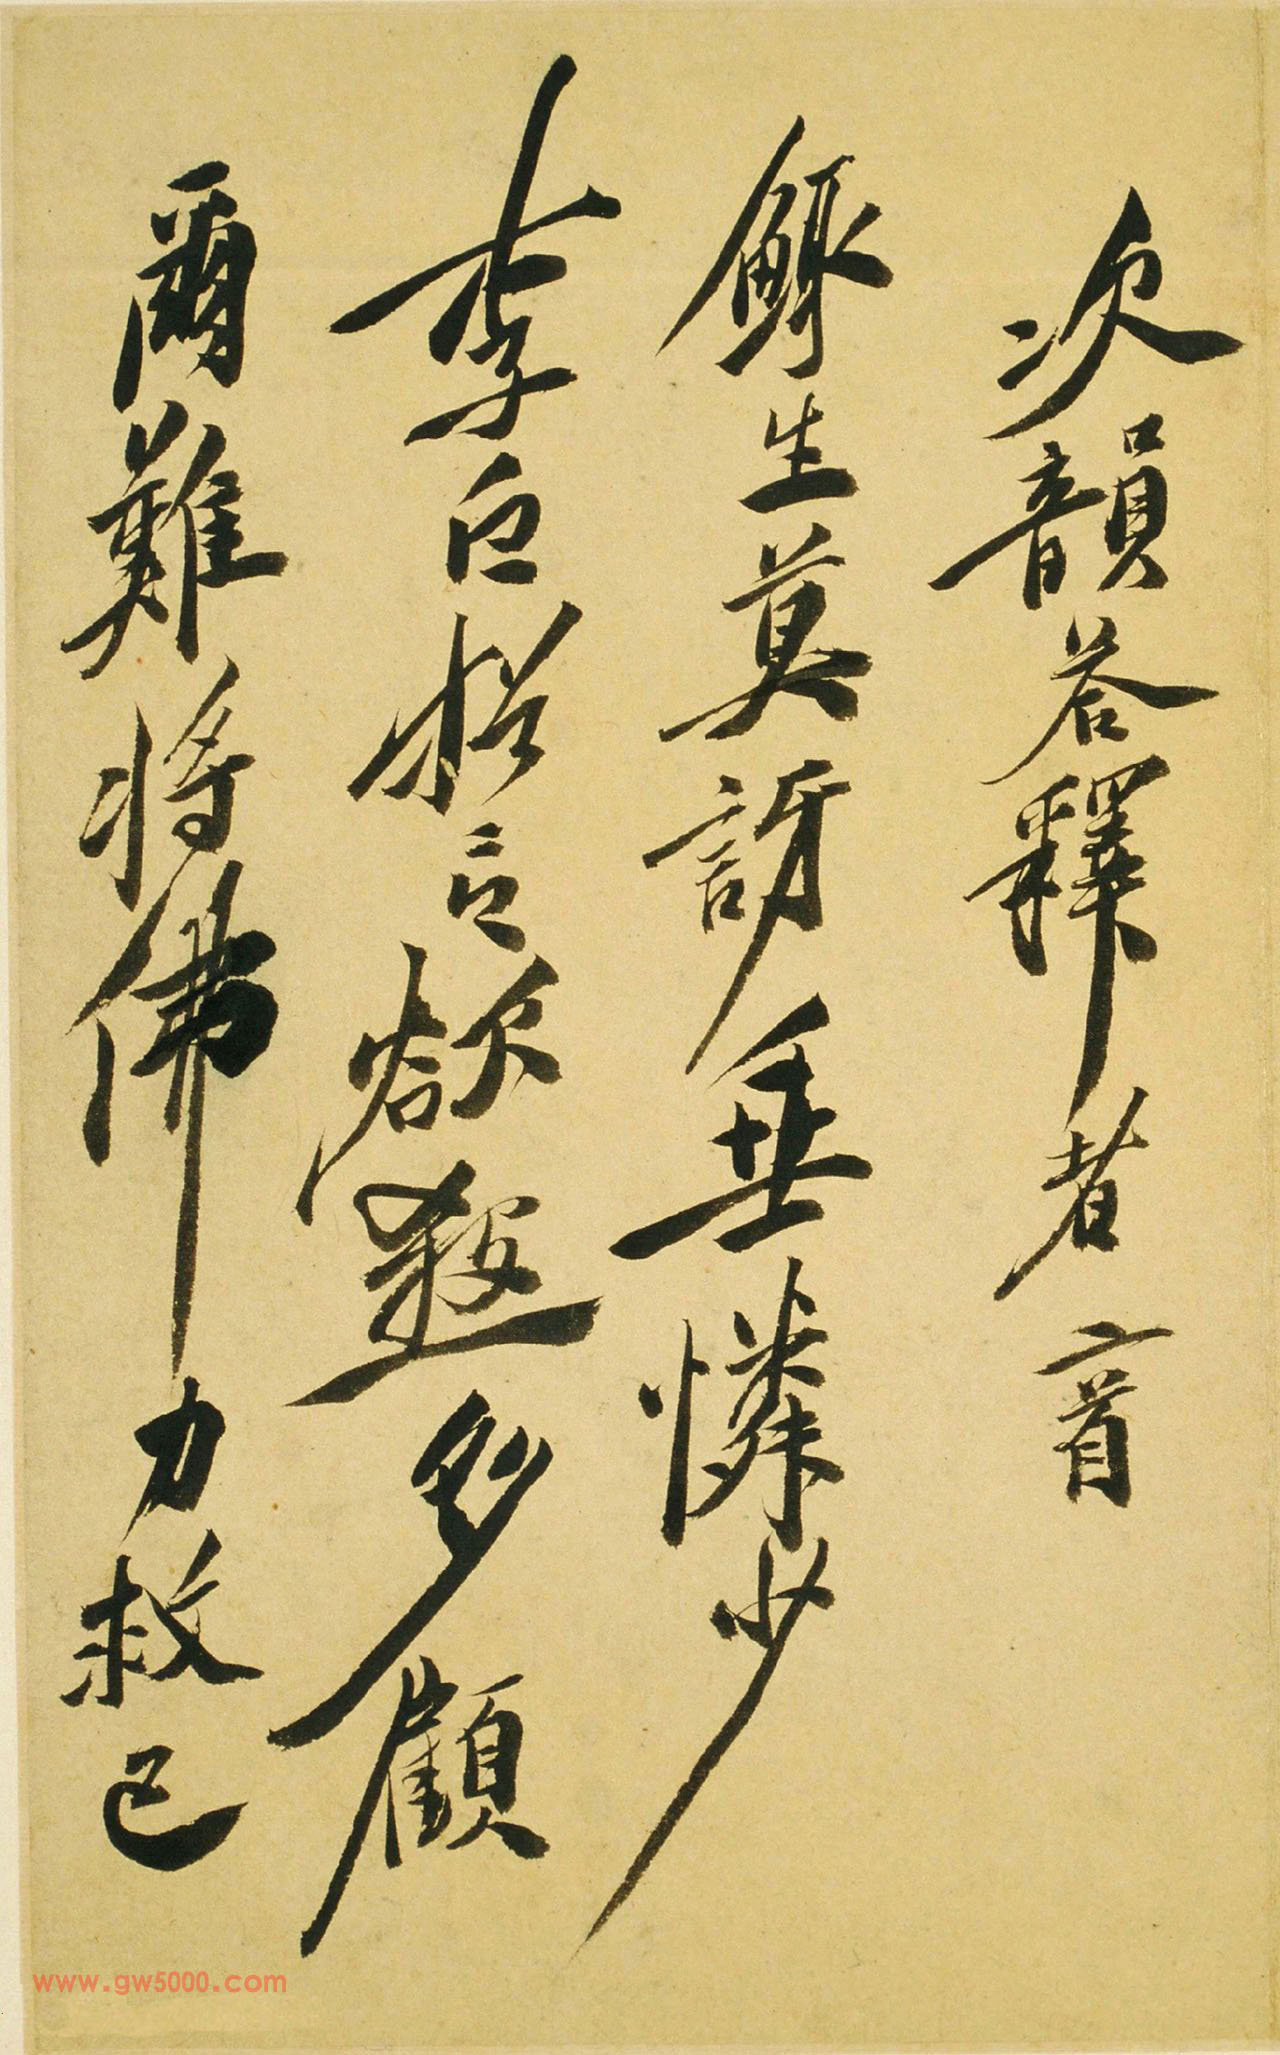 次韻荅釋者二首
鯫生莫訝垂憐少
李白言欲殺多顧
爾難將佛力救已
www.gw5000.com